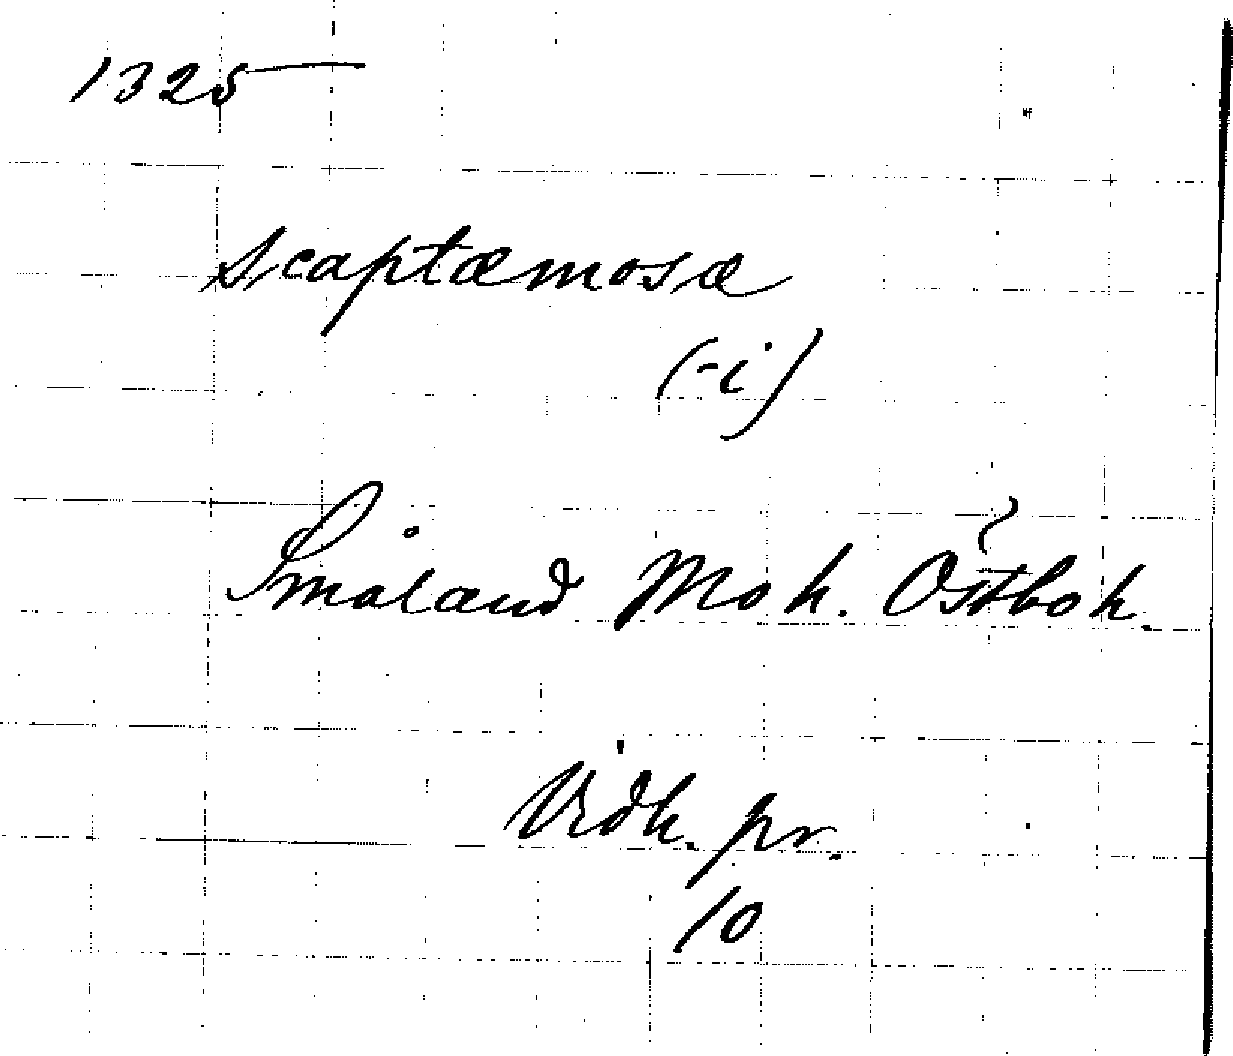 1325
scaptæmosæ
(-i)
Småland Mo h. Östbo h.
Vidh. pr.
10